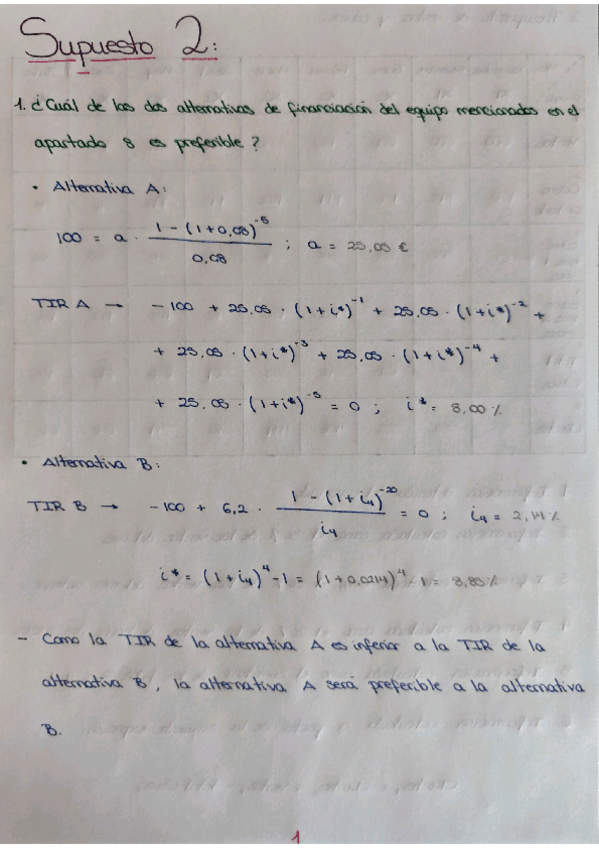 Supuesto 2:
1. ¿Cuál de las dos alternativas de financiación del equipo mencionadas en el
apartado 8 es preferible?
• Alternativa A:
100 = a · (1 - (1+0,08)^-5) / 0,08 ; a = 25,05 €
TIR A → -100 + 25,05 · (1+i*)^-1 + 25,05 · (1+i*)^-2 +
+ 25,05 · (1+i*)^-3 + 25,05 · (1+i*)^-4 +
+ 25,05 · (1+i*)^-5 = 0 ; i* = 8,00 %
• Alternativa B:
TIR B → -100 + 6,2 · (1 - (1+i₄)^-20) / i₄ = 0 ; i₄ = 2,14 %
i* = (1+i₄)^4 - 1 = (1+0,0214)^4 - 1 = 8,85 %
- Como la TIR de la alternativa A es inferior a la TIR de la
alternativa B, la alternativa A será preferible a la alternativa
B.
1